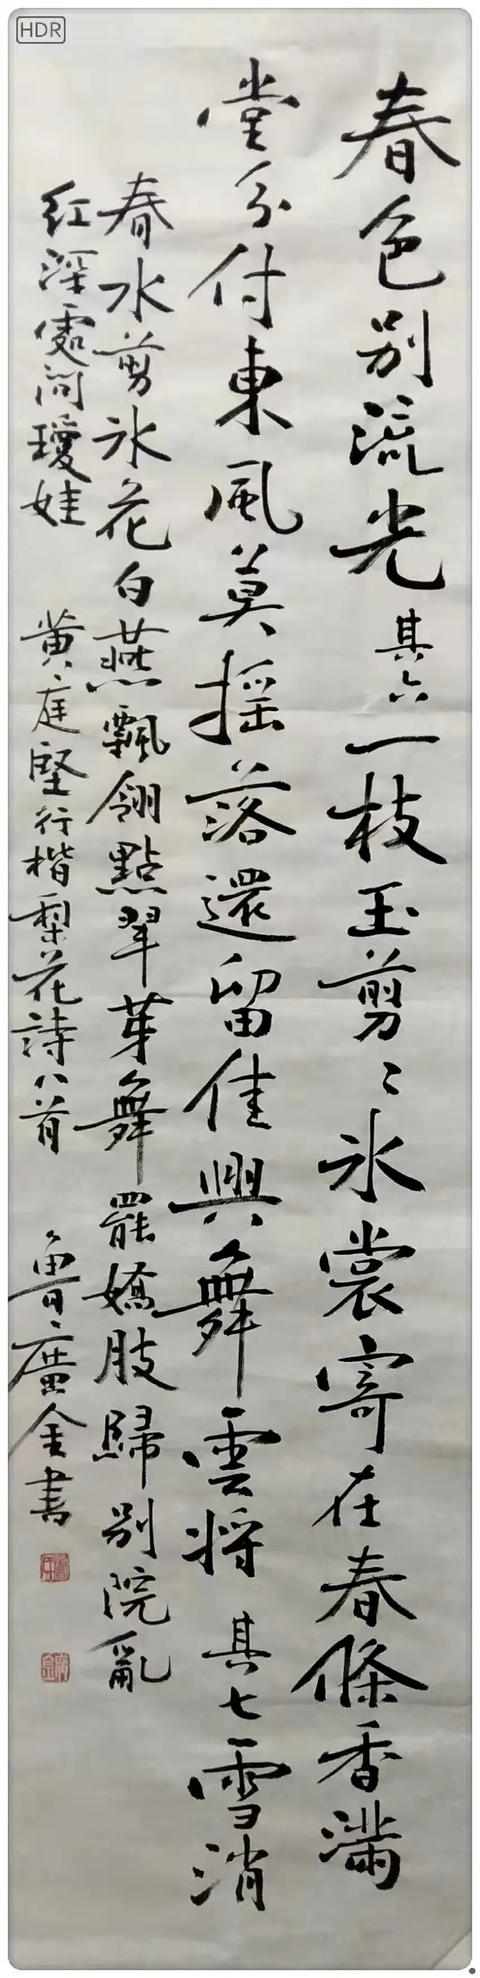 HDR
春色别流光其六一枝玉剪〻冰裳寄在春條香滿
堂分付東風莫摇落還留佳興舞雲将其七雪消
春水剪冰花白燕飄翎點翠芽舞罷嬌肢歸别院亂
红深處问瓊娃
黄庭堅行楷梨花詩八首
魯廣金書